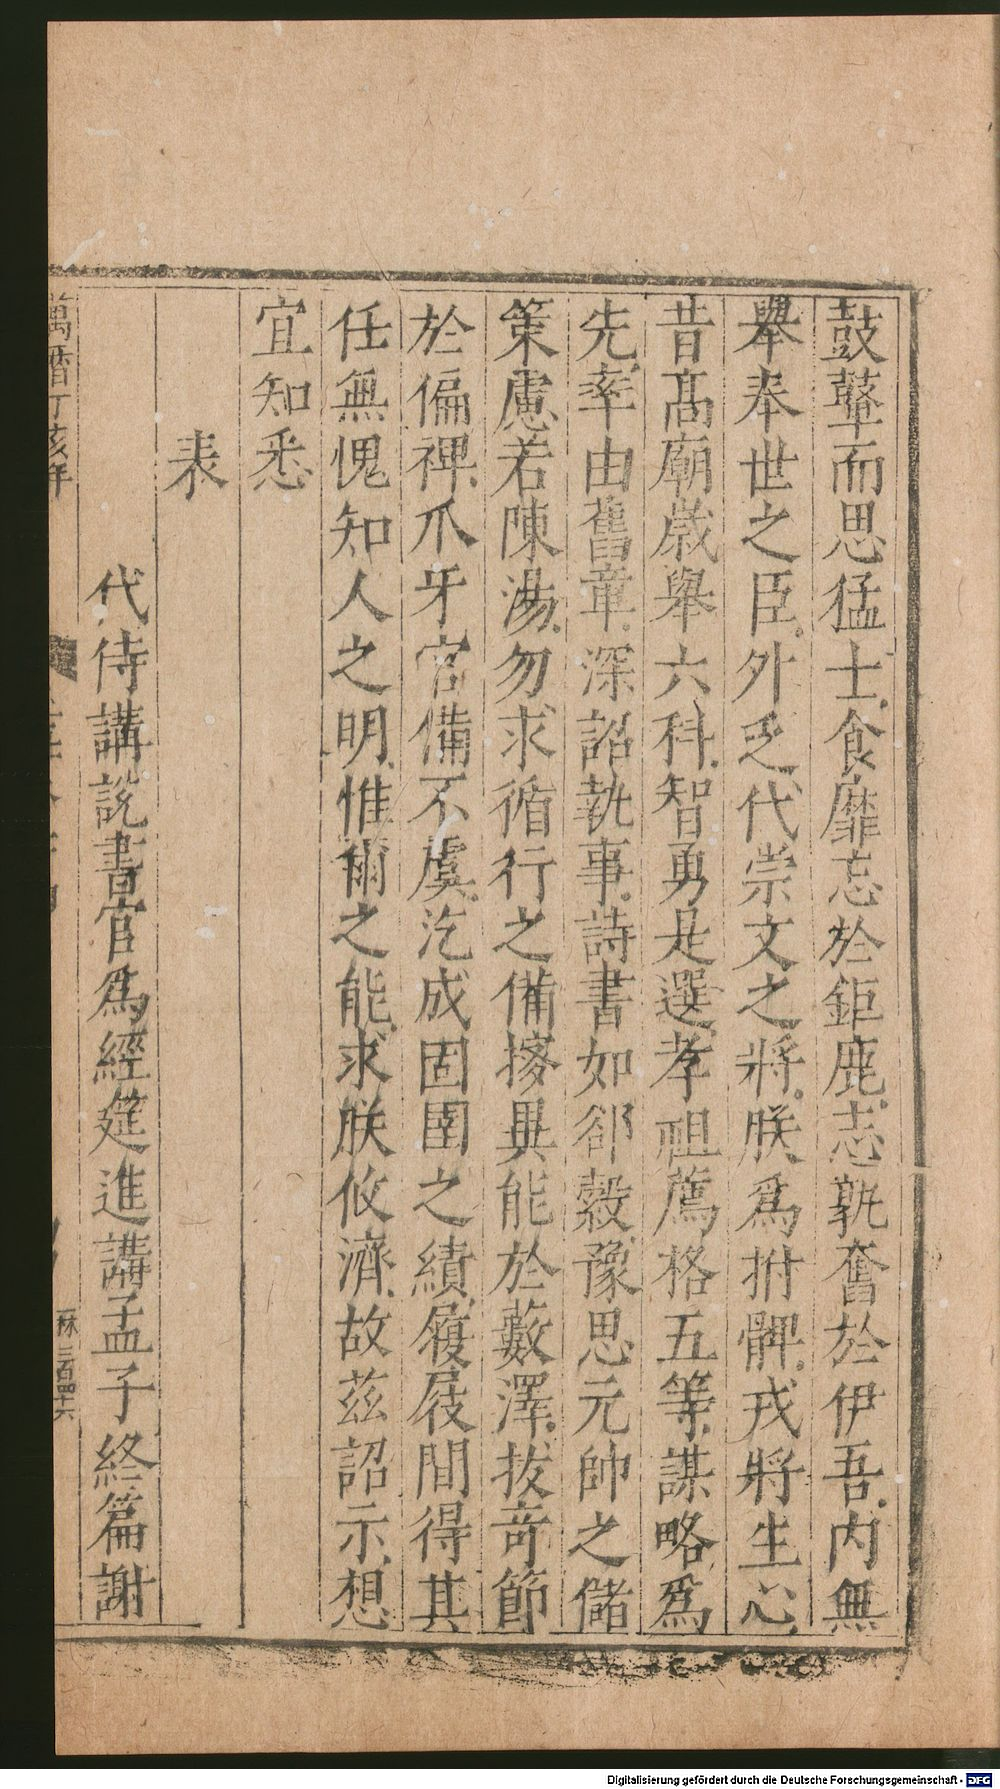 鼓鼙而思猛士食靡忘於鉅鹿志孰奮於伊吾内無
舉奉世之臣外乏代崇文之將朕爲拊髀戎將生心
昔髙廟歳舉六科智勇是選孝祖薦格五等謀略爲
先率由舊章深詔執事詩書如郤縠豫思元帥之儲
策慮若陳湯勿求循行之備搜異能於藪澤拔竒節
於偏裨爪牙官備不虞汔成固圉之績履屐間得其
任無愧知人之明惟爾之能求朕攸濟故茲詔示想
宜知悉
表
代侍講説書官爲經筵進講孟子終篇謝
萬曆丁亥年
三百四十六
Digitalisierung gefördert durch die Deutsche Forschungsgemeinschaft - DFG